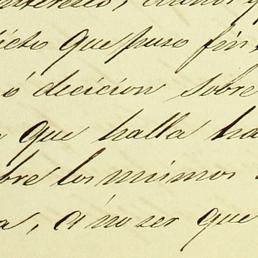 intereses,
que puso fin,
ó decicion sobre
que halla ha
bre los mismos
a, á no ser que